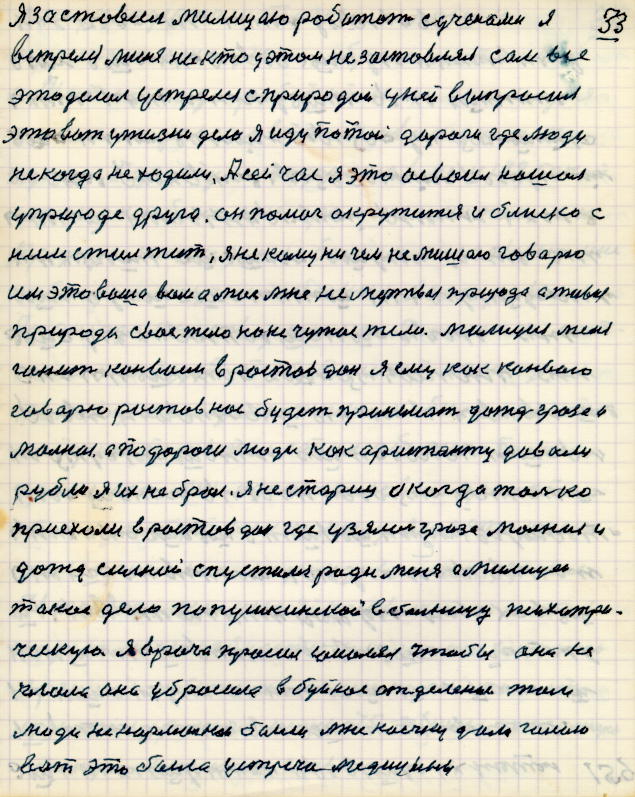 33
Я заставил милицаю работат с учеками я
встрелся меня некто у этом не заставлял сам все
это делал устрелся с природай у ней выпросил
это вот у жизни дело Я иду по той дароги где люди
не когда не ходили, А сей час я это асваил нашол
у природе друга. он помог окружится и блиско с
ним стал жит, я не кому ни чем не мишаю говарю
им это ваша вам а мое мне не мертвая природа а живая
природа свое тело но не чужое тело. милицыя меня
гонит конваем в ростов дон Я ему как конваю
говарю ростов нас будет принемат дожд гроза и
молния. а по дороги люди как аристанту довали
рубли Я их не брал. я не стариц а когда толко
приехали в ростов дон где узялася гроза молния и
дожд силной спустился ради меня а милицыя
такое дело по пушкинской в болницу психатри-
ческую. Я врача просил умолял чтобы она не
клала она убросила в буйное отделение там
люди не нормалнои были мне коечку дали голою
вот это была устреча медицины